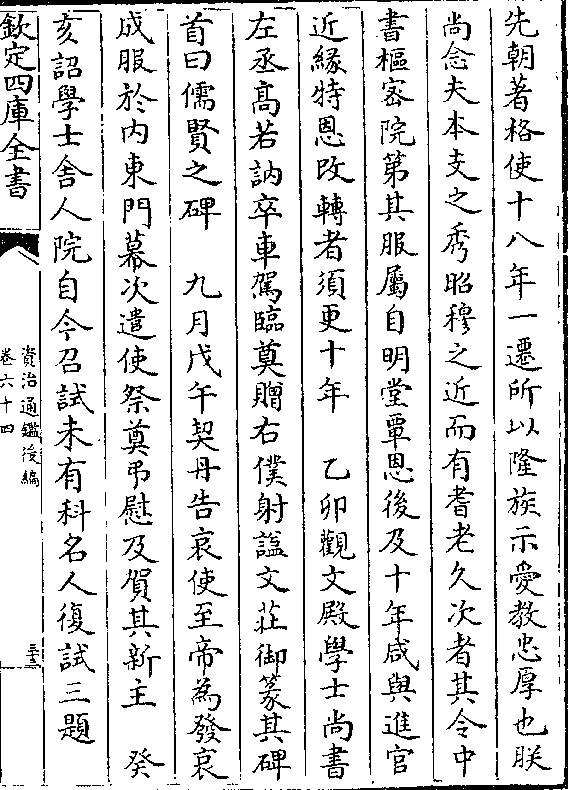 先朝著格使十八年一遷所以隆族示愛教忠厚也朕
尚念夫本支之秀昭穆之近而有耆老久次者其令中
書樞密院第其服屬自明堂覃恩後及十年咸與進官
近緣特恩改轉者須更十年　乙卯觀文殿學士尚書
左丞高若訥卒車駕臨奠贈右僕射諡文莊御篆其碑
首曰儒賢之碑　九月戊午契丹告哀使至帝為發哀
成服於內東門幕次遣使祭奠弔慰及賀其新主　癸
亥詔學士舍人院自今召試未有科名人復試三題
欽定四庫全書
資治通鑑後編
卷六十四
三十三